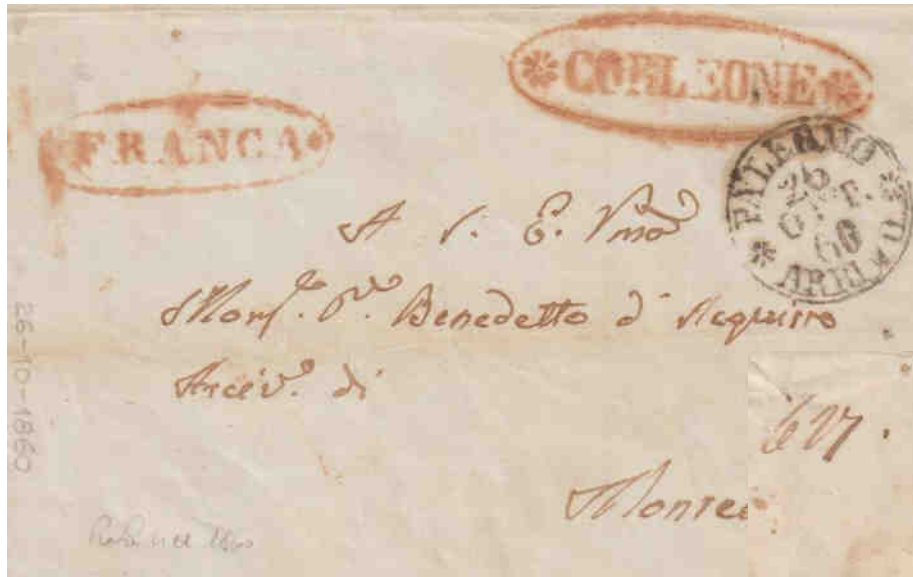 CORLEONE
FRANCA
PALERMO
26
OTT.
60
ARRIVO
A S. E. Rma
Monsr. Dn. Benedetto d'Acquisto
Arciv. di
Monre
26-10-1860